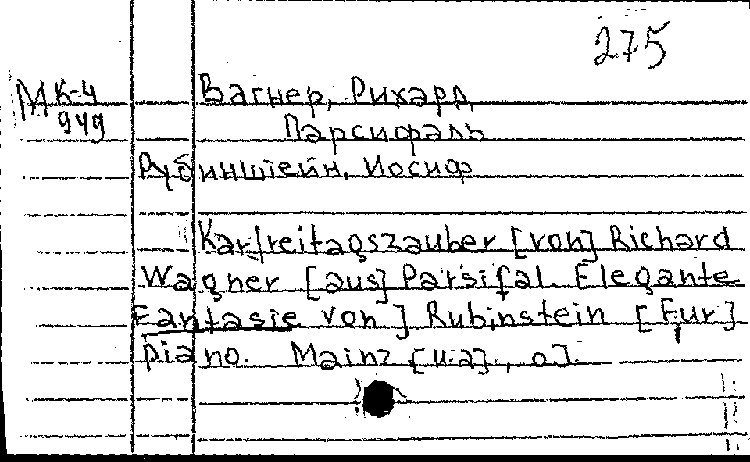 275
МК-4 Вагнер, Рихард
949 Парсифаль
Рубинштейн, Иосиф
Karfreitagszauber [von] Richard
Wagner [aus] Parsifal. Elegante
Fantasie von J Rubinstein [Fur]
piano. Mainz [u.a], o.J.